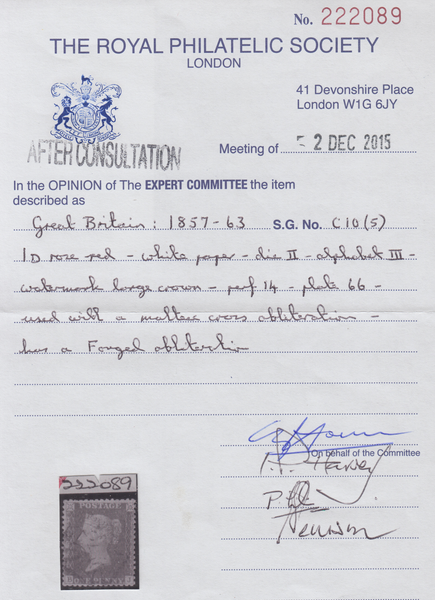 No. 222089
THE ROYAL PHILATELIC SOCIETY
LONDON
41 Devonshire Place
London W1G 6JY
AFTER CONSULTATION
Meeting of 2 DEC 2015
In the OPINION of The EXPERT COMMITTEE the item
described as
Great Britain: 1857-63 S.G. No. C10(5)
1D rose red - white paper - die II - alphabet III -
watermark large crown - perf 14 - plate 66 -
used with a maltese cross obliteration -
has a Forged obliteration
On behalf of the Committee
222089
POSTAGE
ONE PENNY